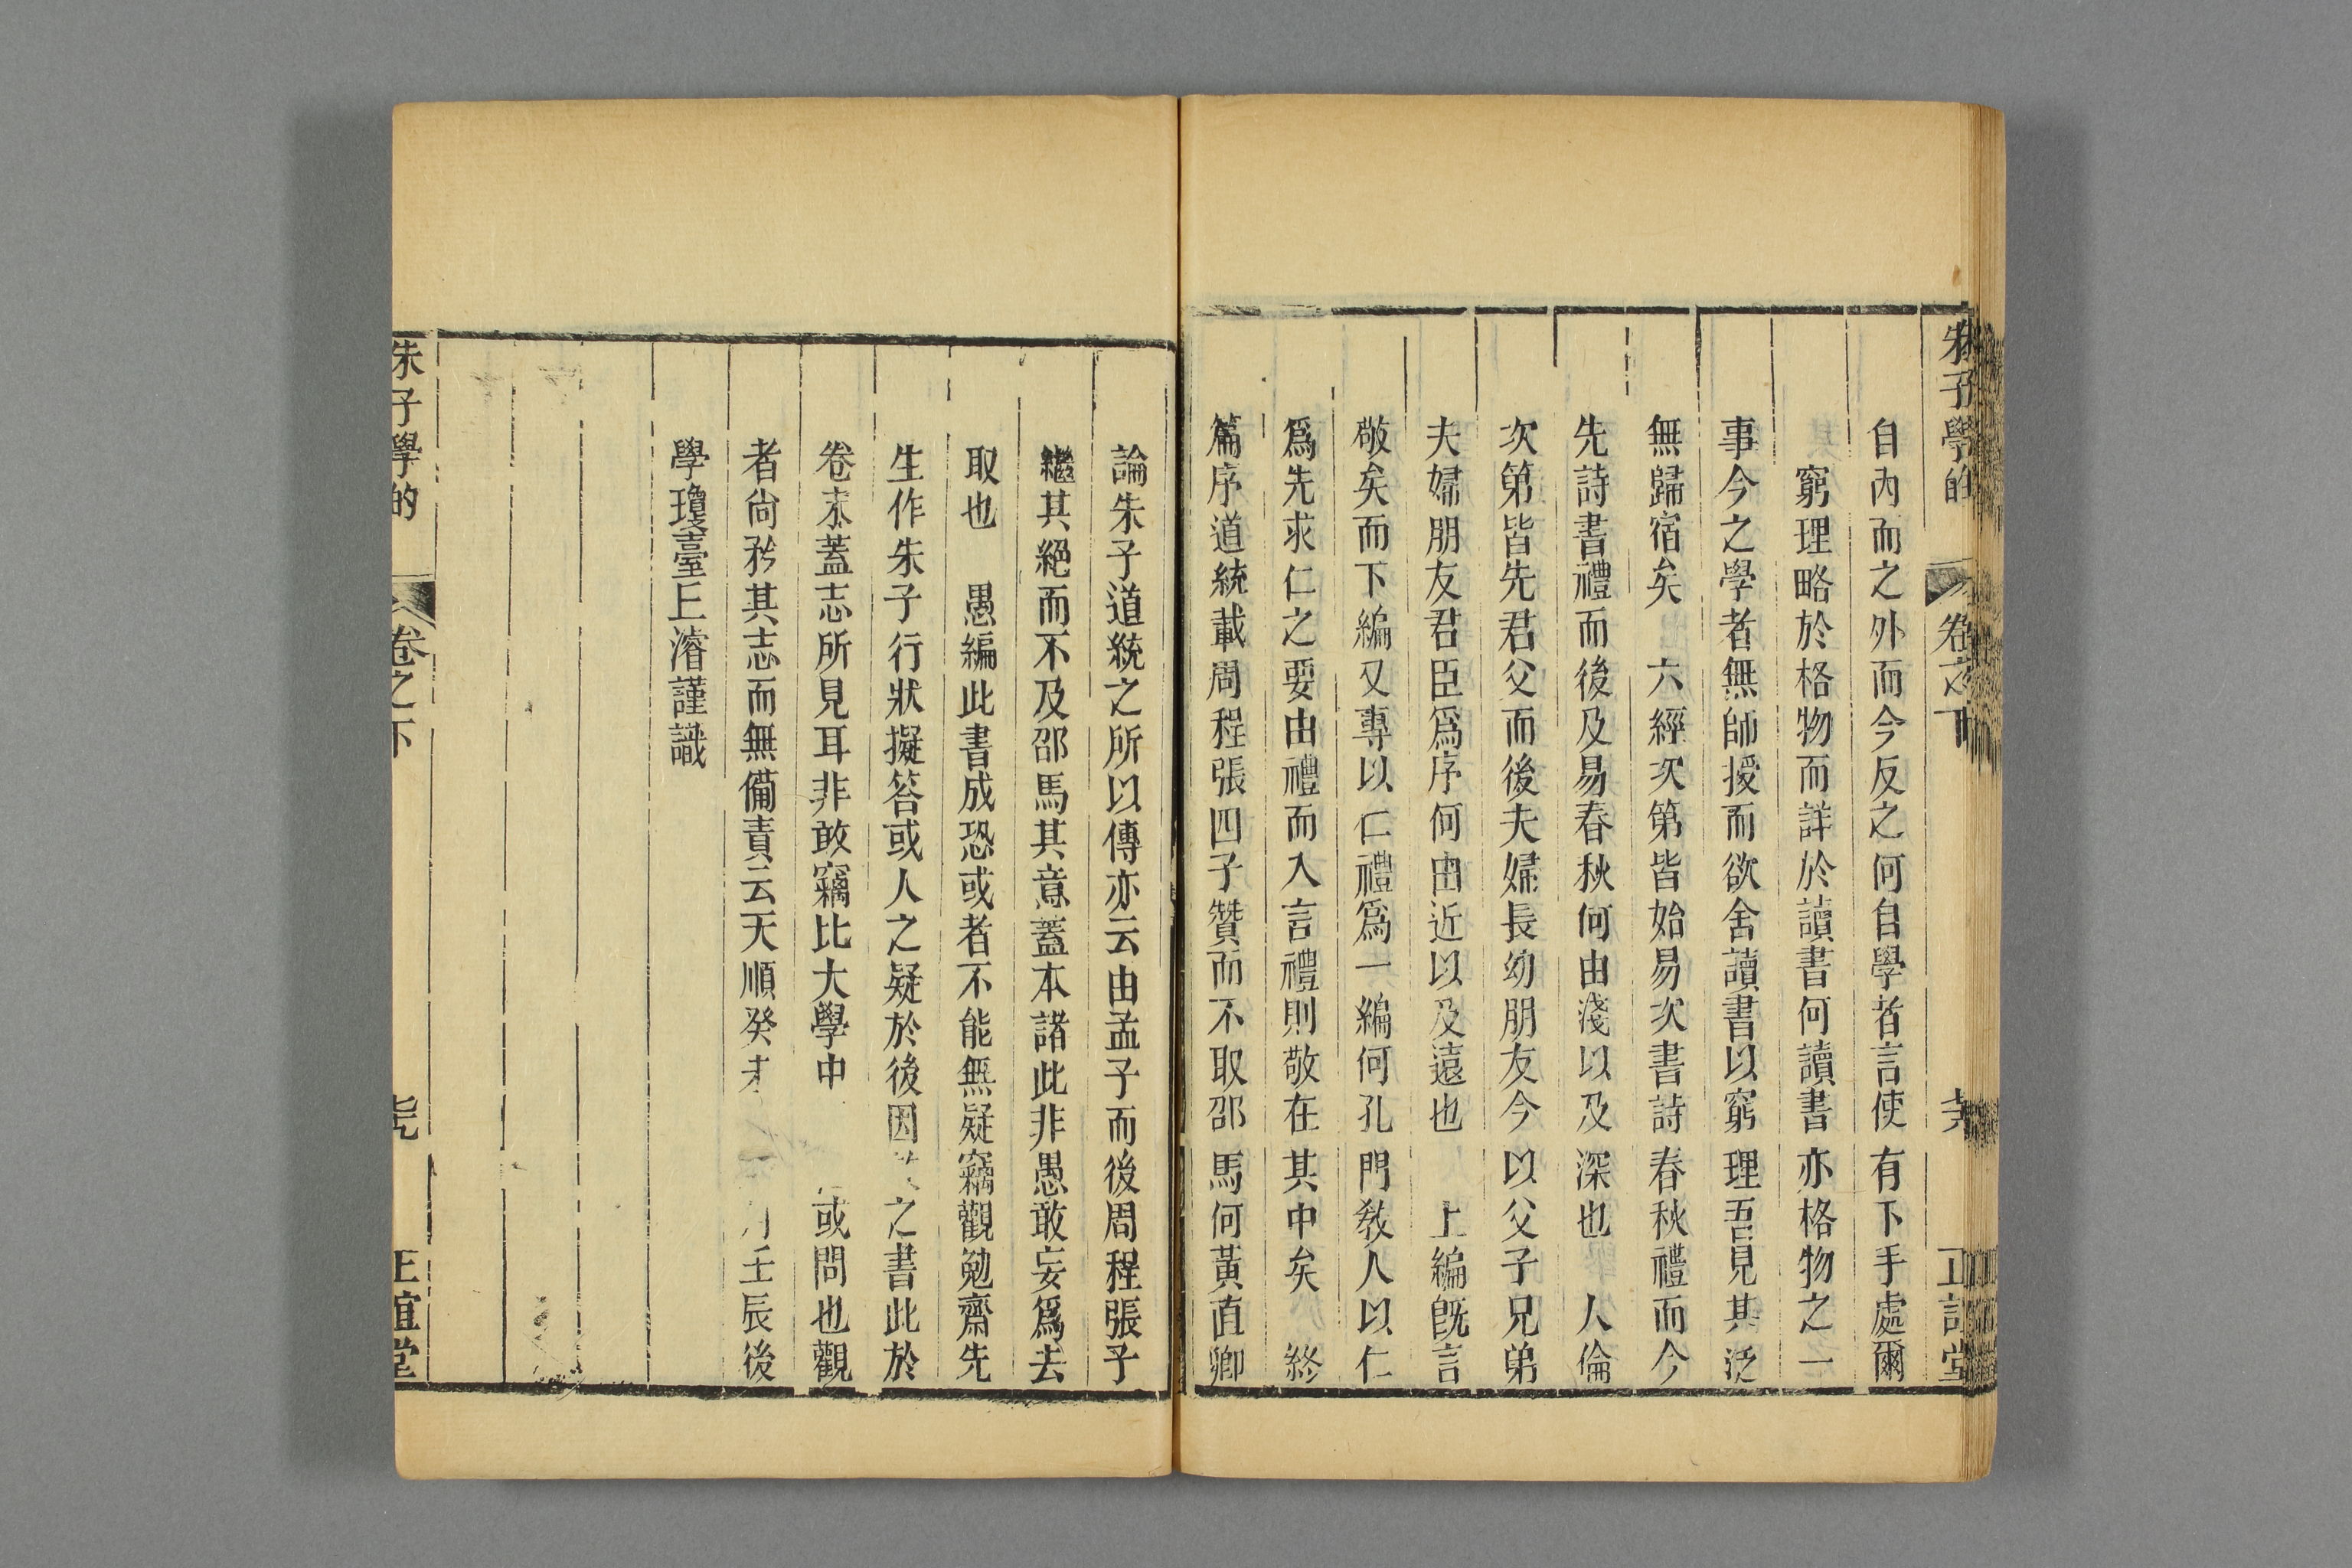 朱子學的 卷之下 正誼堂
自內而之外而今反之何自學者言使有下手處爾
窮理略於格物而詳於讀書何讀書亦格物之一
事今之學者無師授而欲舍讀書以窮理吾見其泛
無歸宿矣 六經次第皆始易次書詩春秋禮而今
先詩書禮而後及易春秋何由淺以及深也 人倫
次第皆先君父而後夫婦長幼朋友今以父子兄弟
夫婦朋友君臣爲序何由近以及遠也 上編旣言
敬矣而下編又專以仁禮爲一編何孔門敎人以仁
爲先求仁之要由禮而入言禮則敬在其中矣 終
篇序道統載周程張四子贊而不取邵馬何黃直卿
論朱子道統之所以傳亦云由孟子而後周程張子
繼其絕而不及邵馬其意蓋本諸此非愚敢妄爲去
取也 愚編此書成恐或者不能無疑竊觀勉齋先
生作朱子行狀擬答或人之疑於後因之書此於
卷末蓋志所見耳非敢竊比大學中或問也觀
者尙矜其志而無備責云天順癸未月壬辰後
學瓊臺丘濬謹識
朱子學的 卷之下 正誼堂